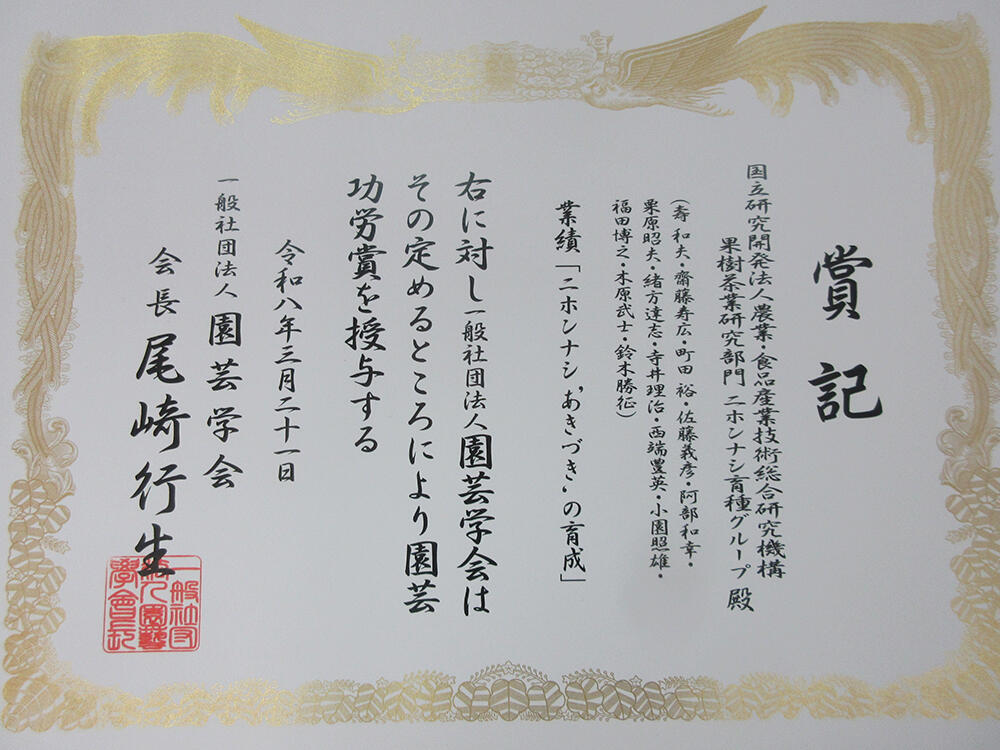 賞記
国立研究開発法人農業・食品産業技術総合研究機構
果樹茶業研究部門 ニホンナシ育種グループ 殿
(壽 和夫・齋藤寿広・町田 裕・佐藤義彦・阿部和幸・
栗原昭夫・緒方達志・寺井理治・西端豊英・小園照雄・
福田博之・木原武士・鈴木勝征)
業績「ニホンナシ‘あきづき’の育成」
右に対し一般社団法人園芸学会は
その定めるところにより園芸
功労賞を授与する
令和八年三月二十一日
一般社団法人 園芸学会
会長 尾崎行生